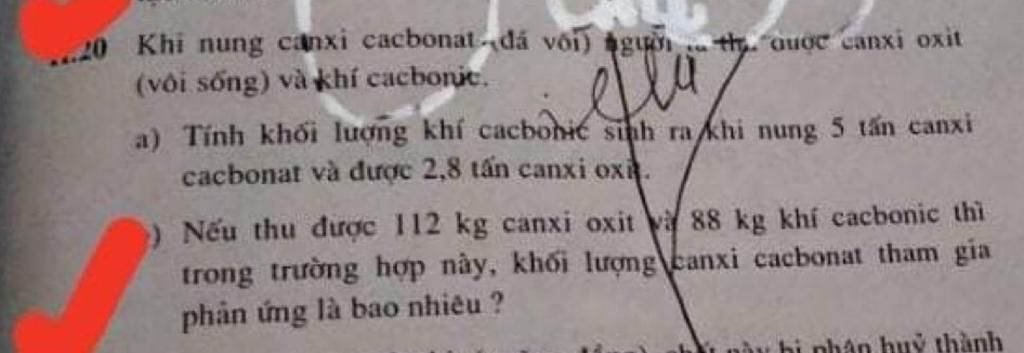 .20 Khi nung canxi cacbonat (đá vôi) người ta thu được canxi oxit
(vôi sống) và khí cacbonic.
a) Tính khối lượng khí cacbonic sinh ra khi nung 5 tấn canxi
cacbonat và được 2,8 tấn canxi oxit.
) Nếu thu được 112 kg canxi oxit và 88 kg khí cacbonic thì
trong trường hợp này, khối lượng canxi cacbonat tham gia
phản ứng là bao nhiêu ?
này bị phân huỷ thành